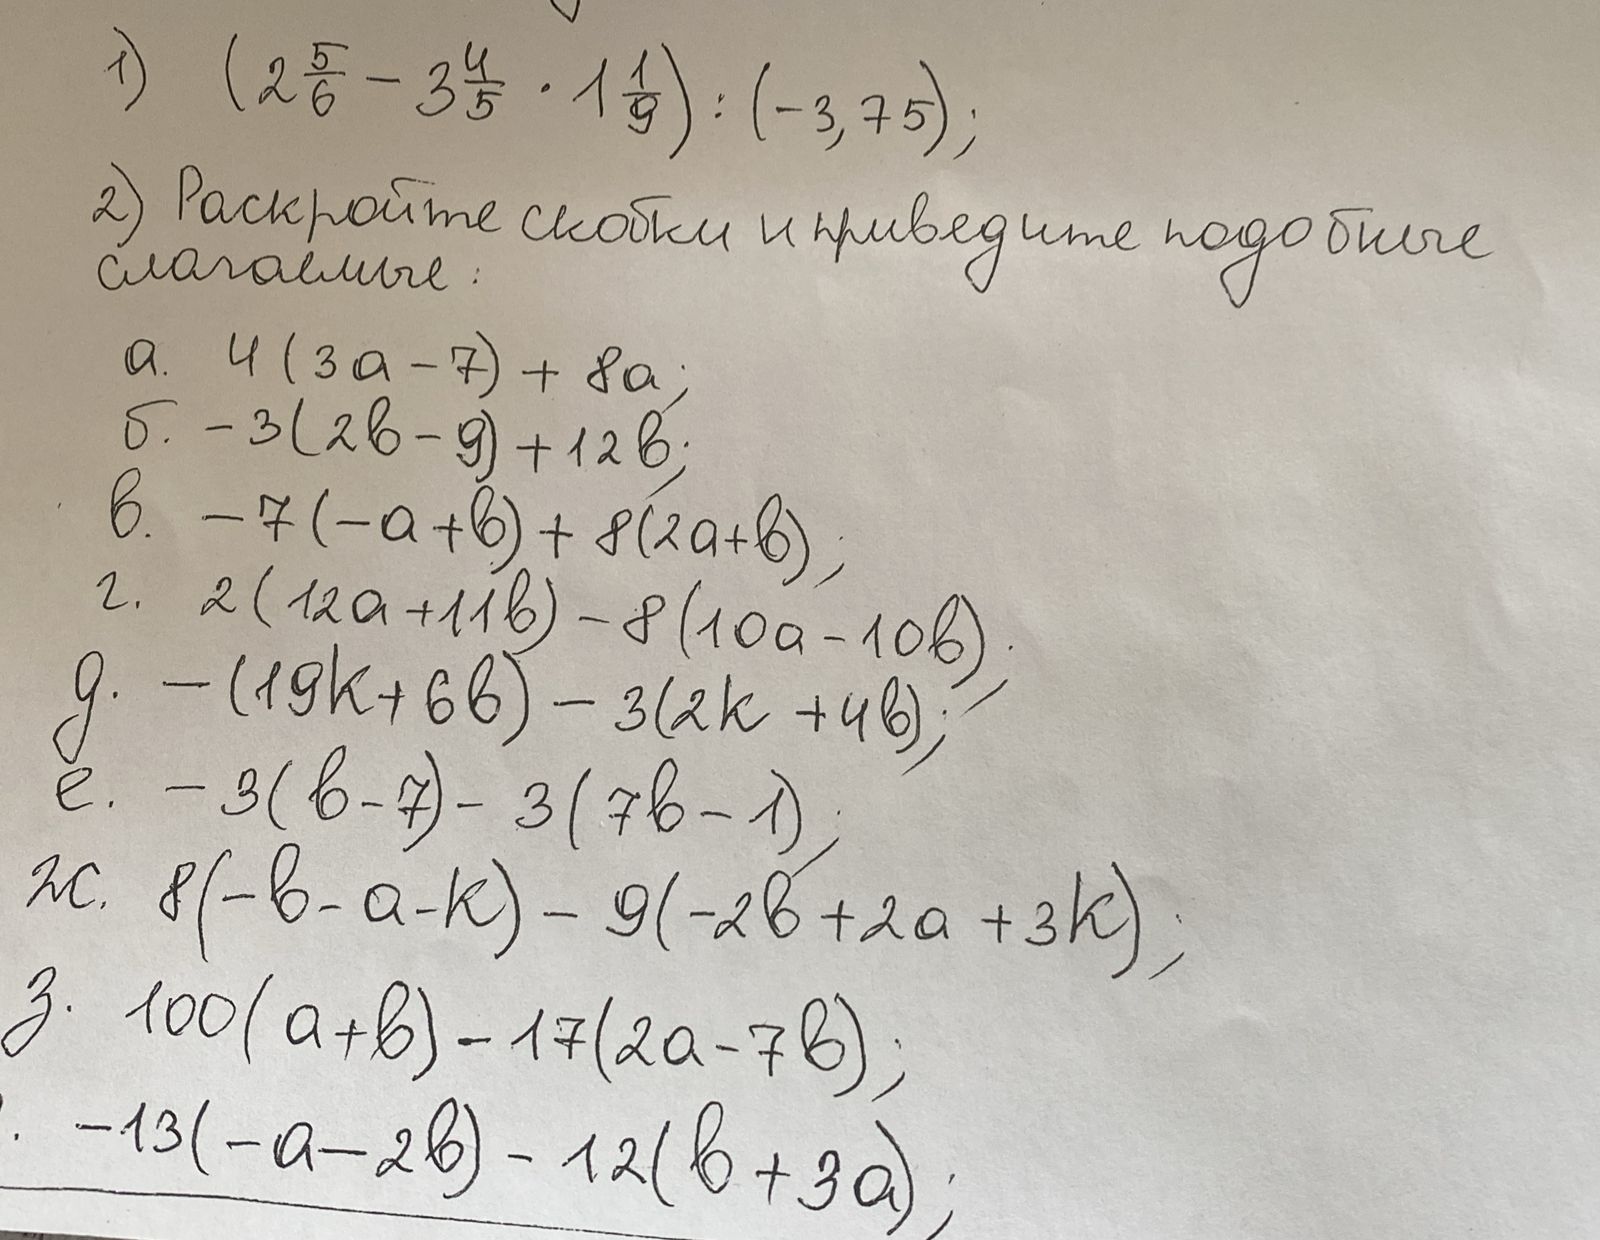 1) (2 5/6 - 3 4/5 · 1 1/9) : (-3,75);
2) Раскройте скобки и приведите подобные
слагаемые:
а. 4(3a-7) + 8a;
б. -3(2b-9)+12b;
в. -7(-a+b)+8(2a+b);
г. 2(12a+11b)-8(10a-10b);
д. -(19k+6b)-3(2k+4b);
е. -3(b-7)-3(7b-1);
ж. 8(-b-a-k)-9(-2b+2a+3k);
з. 100(a+b)-17(2a-7b);
. -13(-a-2b)-12(b+3a);